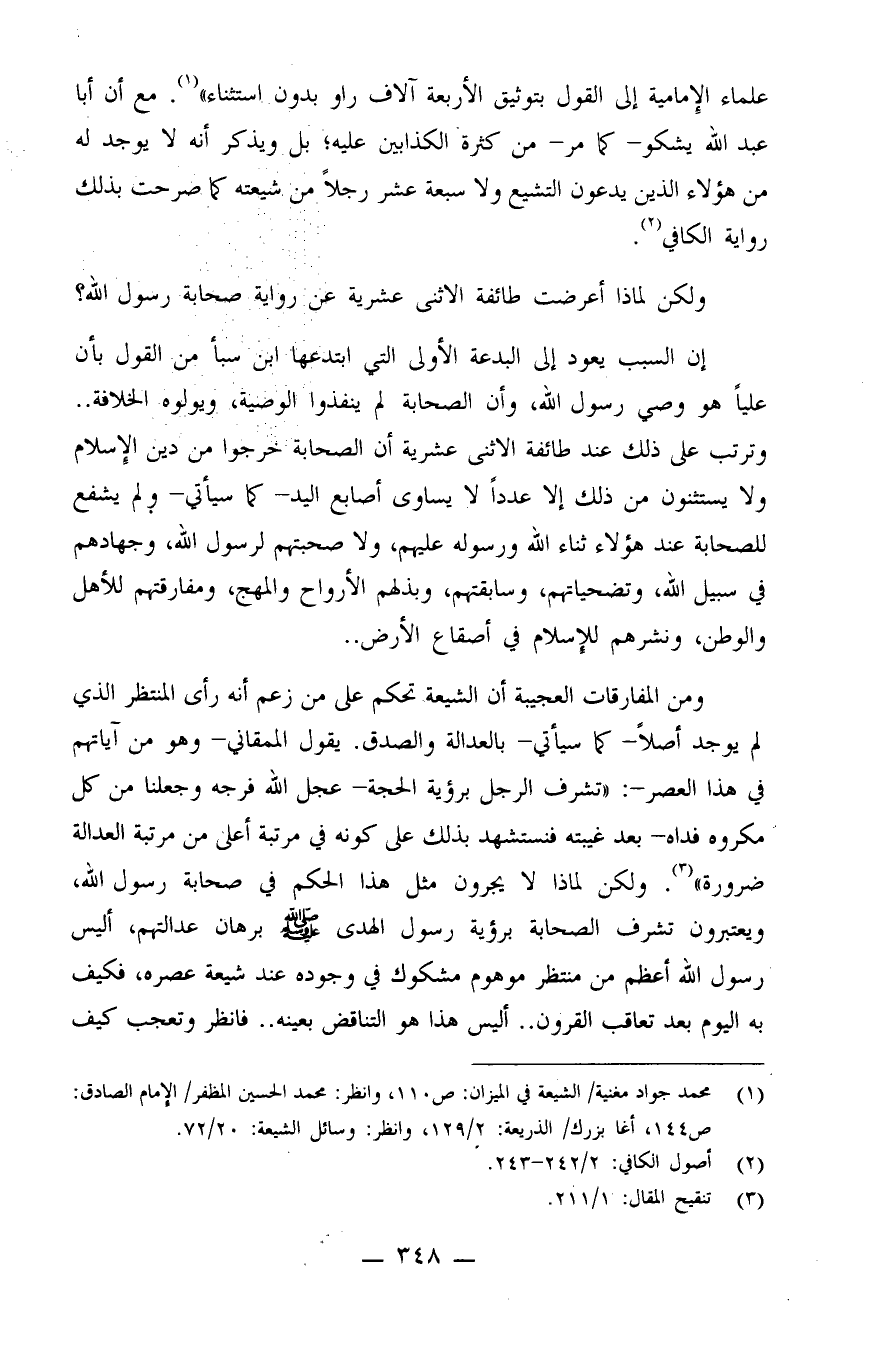 علماء الإمامية إلى القول بتوثيق الأربعة آلاف راو بدون استثناء»(١). مع أن أبا
عبد الله يشكو– كما مر– من كثرة الكذابين عليه؛ بل ويذكر أنه لا يوجد له
من هؤلاء الذين يدعون التشيع ولا سبعة عشر رجلاً من شيعته كما صرحت بذلك
رواية الكافي(٢).
ولكن لماذا أعرضت طائفة الاثنى عشرية عن رواية صحابة رسول الله؟
إن السبب يعود إلى البدعة الأولى التي ابتدعها ابن سبأ من القول بأن
علياً هو وصي رسول الله، وأن الصحابة لم ينفذوا الوصية، ويولوه الخلافة..
وترتب على ذلك عند طائفة الاثنى عشرية أن الصحابة خرجوا من دين الإسلام
ولا يستثنون من ذلك إلا عدداً لا يساوى أصابع اليد– كما سيأتي– ولم يشفع
للصحابة عند هؤلاء ثناء الله ورسوله عليهم، ولا صحبتهم لرسول الله، وجهادهم
في سبيل الله، وتضحياتهم، وسابقتهم، وبذلهم الأرواح والمهج، ومفارقتهم للأهل
والوطن، ونشرهم للإسلام في أصقاع الأرض..
ومن المفارقات العجيبة أن الشيعة تحكم على من زعم أنه رأى المنتظر الذي
لم يوجد أصلاً– كما سيأتي– بالعدالة والصدق. يقول الممقاني– وهو من آياتهم
في هذا العصر–: «تشرف الرجل برؤية الحجة– عجل الله فرجه وجعلنا من كل
مكروه فداه– بعد غيبته فنستشهد بذلك على كونه في مرتبة أعلى من مرتبة العدالة
ضرورة»(٣). ولكن لماذا لا يجرون مثل هذا الحكم في صحابة رسول الله،
ويعتبرون تشرف الصحابة برؤية رسول الهدى ﷺ برهان عدالتهم، أليس
رسول الله أعظم من منتظر موهوم مشكوك في وجوده عند شيعة عصره، فكيف
به اليوم بعد تعاقب القرون.. أليس هذا هو التناقض بعينه.. فانظر وتعجب كيف
(١) محمد جواد مغنية/ الشيعة في الميزان: ص١١٠، وانظر: محمد الحسين المظفر/ الإمام الصادق:
ص١٤٤، أغا بزرك/ الذريعة: ١٢٩/٢، وانظر: وسائل الشيعة: ٧٢/٢٠.
(٢) أصول الكافي: ٢٤٢/٢–٢٤٣.
(٣) تنقيح المقال: ٢١١/١.
— ٣٤٨ —